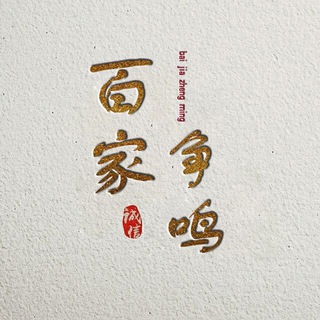 百家
争鸣
bai jia zheng ming
诚信